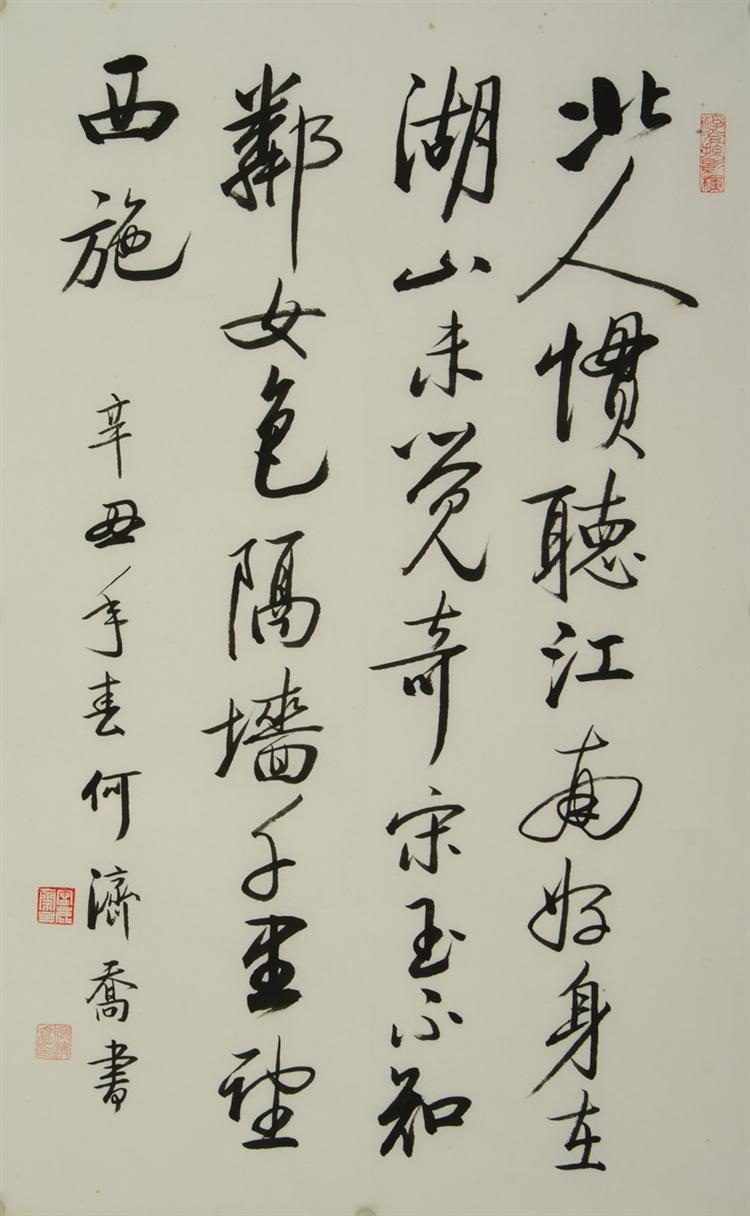 北人慣聽江南好身在
湖山未覺奇宋玉不知
鄰女色隔墻千里望
西施
辛丑年春何濟喬書